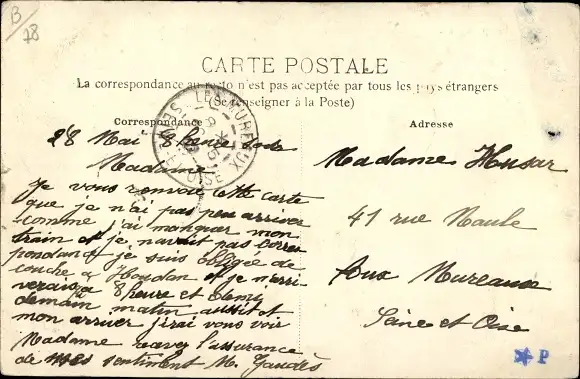 B
78
CARTE POSTALE
La correspondance au recto n'est pas acceptée par tous les pays étrangers
(Se renseigner à la Poste)
Correspondance
Adresse
LES MUREAUX
SEINE-ET-OISE
28 Mai 8 heure
Madame
Je vous renvoie cette carte
que je n'ai pas peu arriver
comme j'ai manquer mon
train et je navait pas Corres
pondance je suis obligée de
couché a Houdan et je n'arri
verais a 8 heure et demy
demain matin aussitot
mon arriver j'irai vous voir
Madame recevez l'assurance
de mes sentiment M. Gaudès
Madame Husar
41 rue Naule
Aux Mureaux
Seine et Oise
P